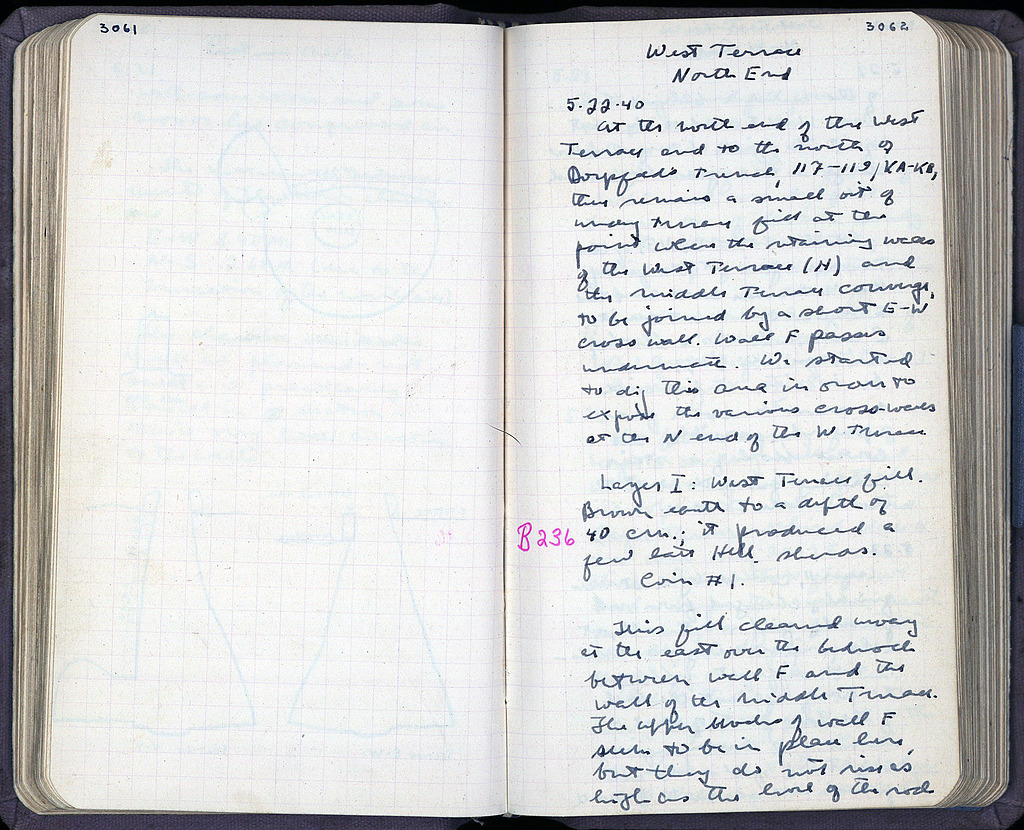 3061
3062
West Terrace
North End
5-22-40
At the north end of the West
Terrace and to the north of
Dörpfeld's Trench, 117-119/KA-KB,
there remains a small bit of
undug terrace fill at the
point where the retaining walls
of the West Terrace (H) and
the Middle Terrace converge,
to be joined by a short E-W
cross wall. Wall F passes
underneath. We started
to dig this area in order to
expose the various cross-walls
at the N end of the W Terrace
Layer I: West Terrace fill.
Brown earth to a depth of
B236
40 cm.; it produced a
few late Hell. sherds.
Coin #1.
This fill cleared away
at the east over the bedrock
between wall F and the
wall of the Middle Terrace.
The upper blocks of wall F
seem to be in place here,
but they do not rise as
high as the level of the rock